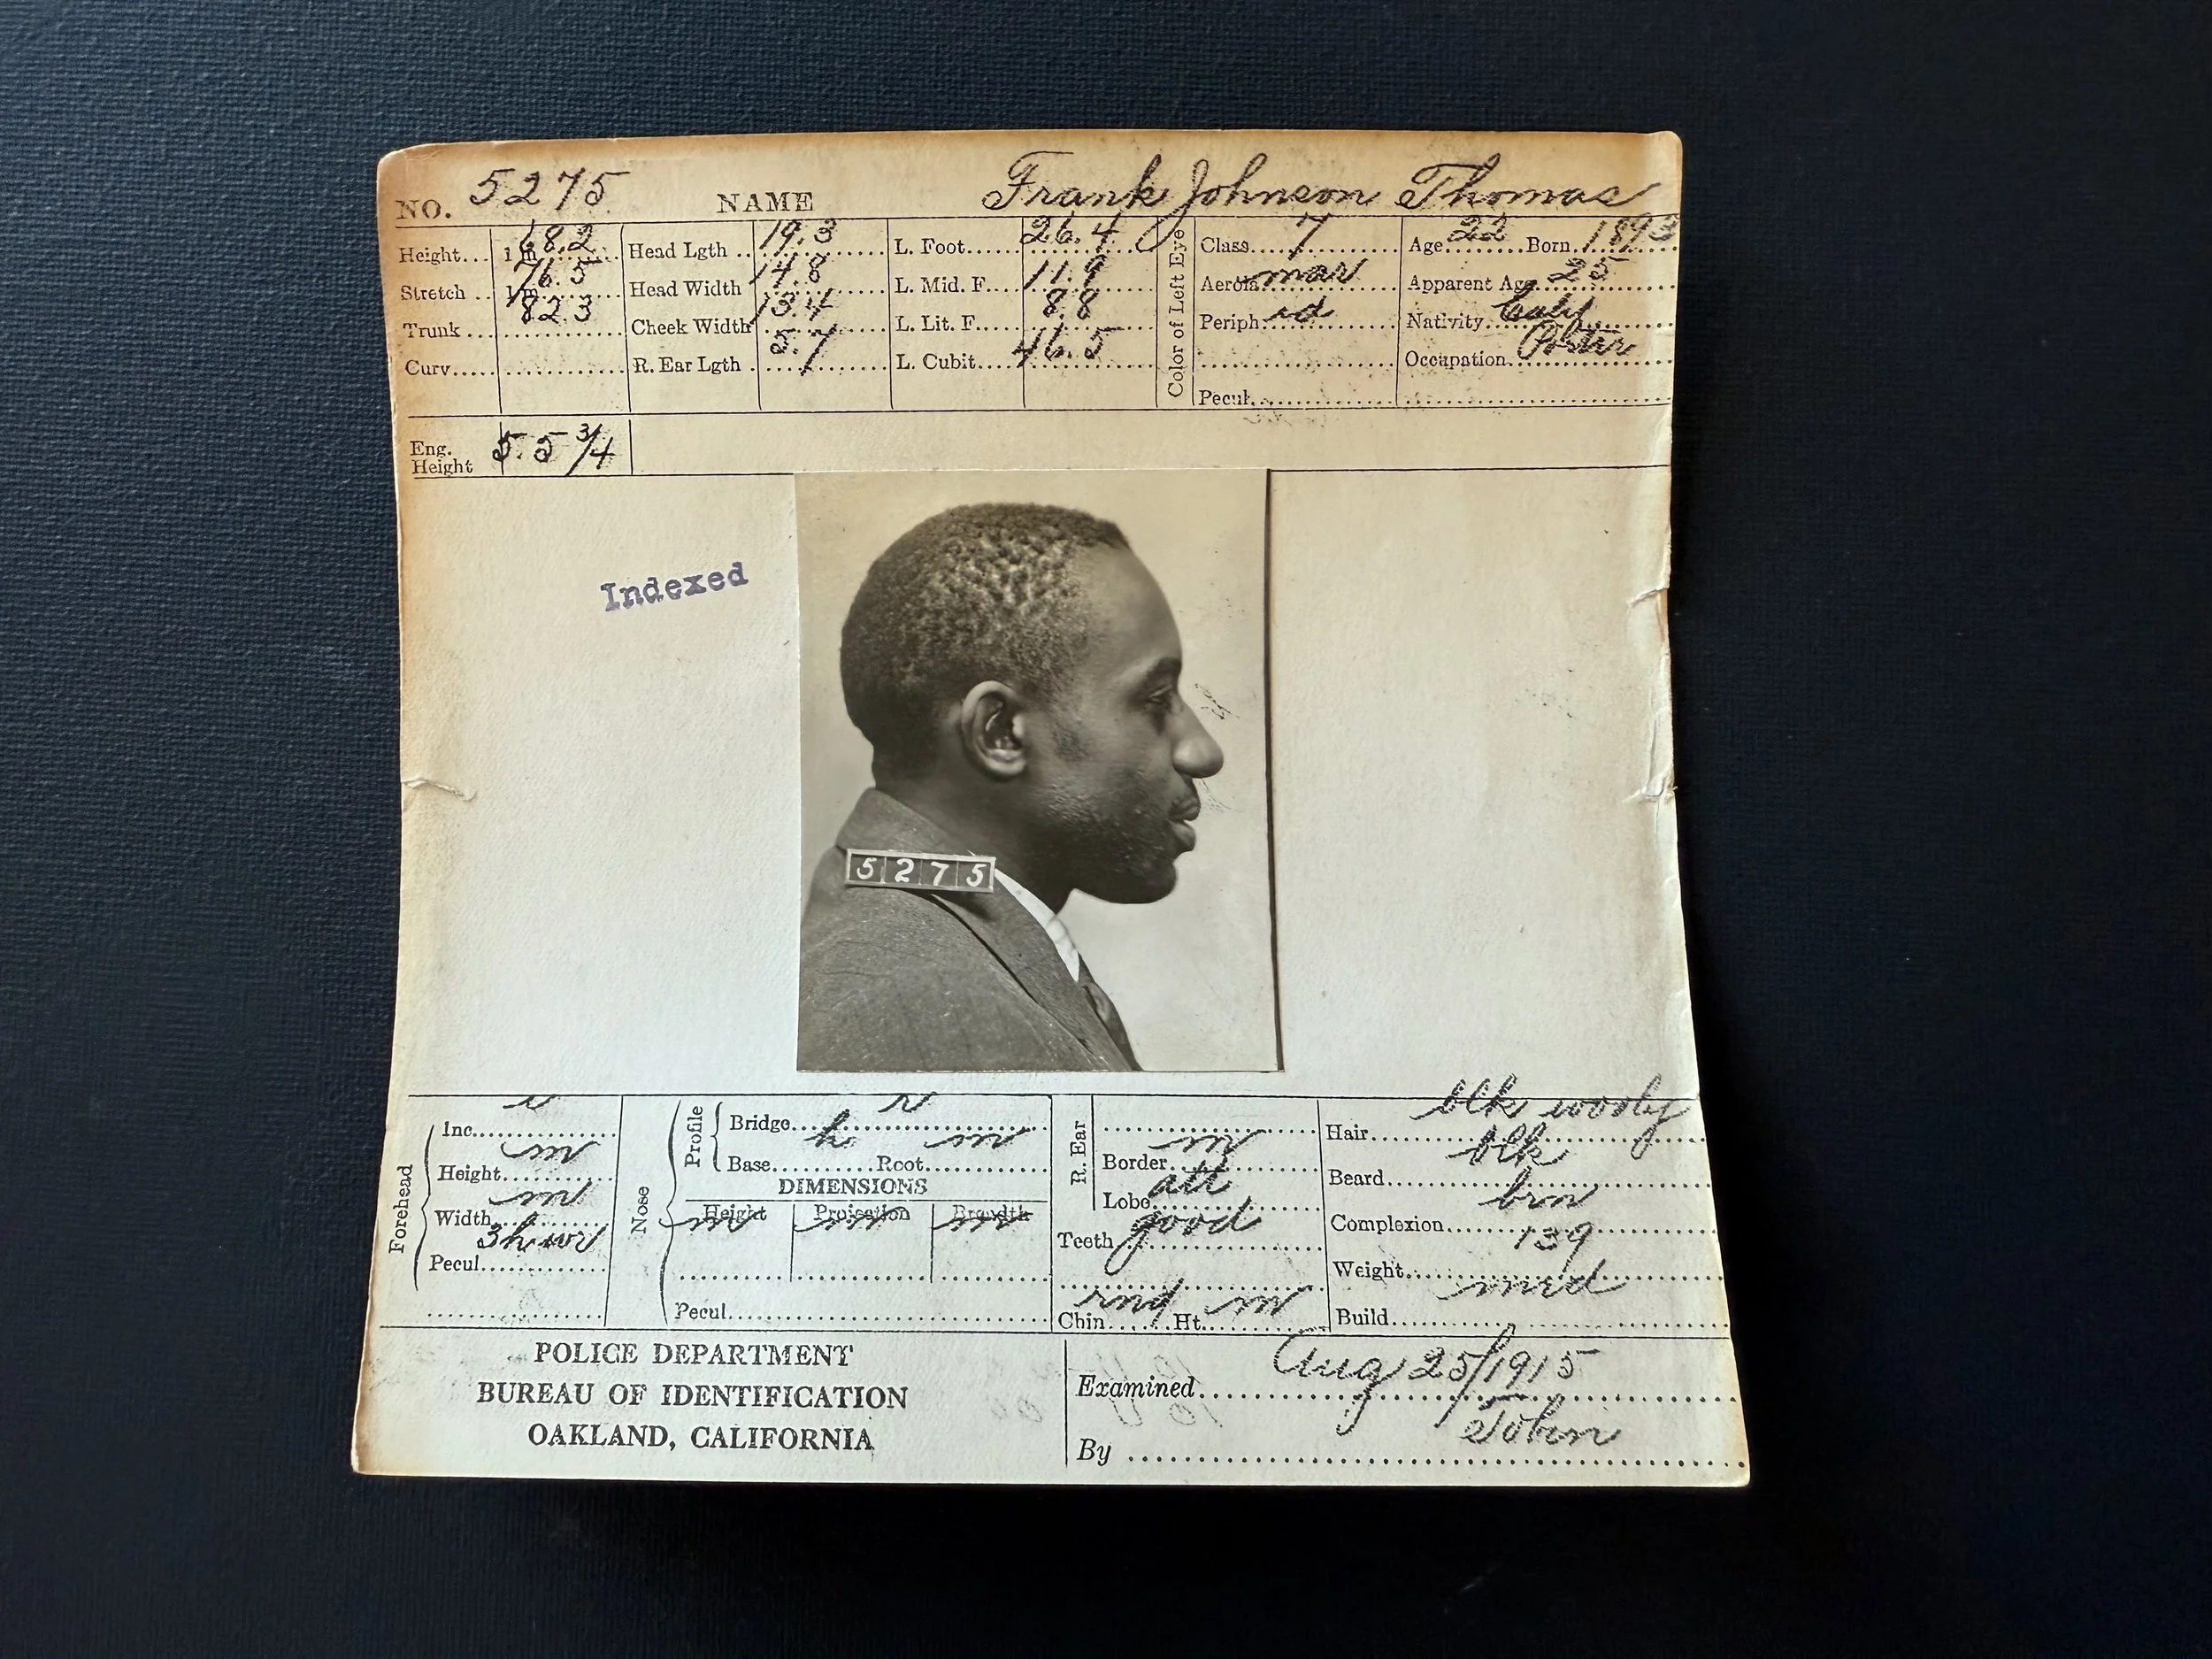 NO. 5275 NAME Frank Johnson Thomas
Height... 1 m 68.2 Head Lgth .. 19.3 L. Foot.... 26.4 Class... 7 Age 22 Born 1893
Stretch .. 1 m 76.5 Head Width 14.8 L. Mid. F... 11.9 Aerola mar Apparent Age 25
Trunk ... 82.3 Cheek Width 13.4 L. Lit. F.... 8.8 Periph. id Nativity.. Caly
Curv..... R. Ear Lgth . 5.7 L. Cubit.... 46.5 Occupation. Porter
Color of Left Eye
Pecul.
Eng.
Height 5.5 3/4
Indexed
5275
Forehead
Inc. r
Height m
Width m
Pecul.
Nose
Profile
Bridge r
Base h Root m
DIMENSIONS
Height m Projection m Breadth m
Pecul.
R. Ear
Border m
Lobe att
Teeth good
Chin rnd Ht. m
Hair blk wooly
Beard blk
Complexion brn
Weight 139
Build med
POLICE DEPARTMENT
BUREAU OF IDENTIFICATION
OAKLAND, CALIFORNIA
Examined Aug 25/1915
By Tobin